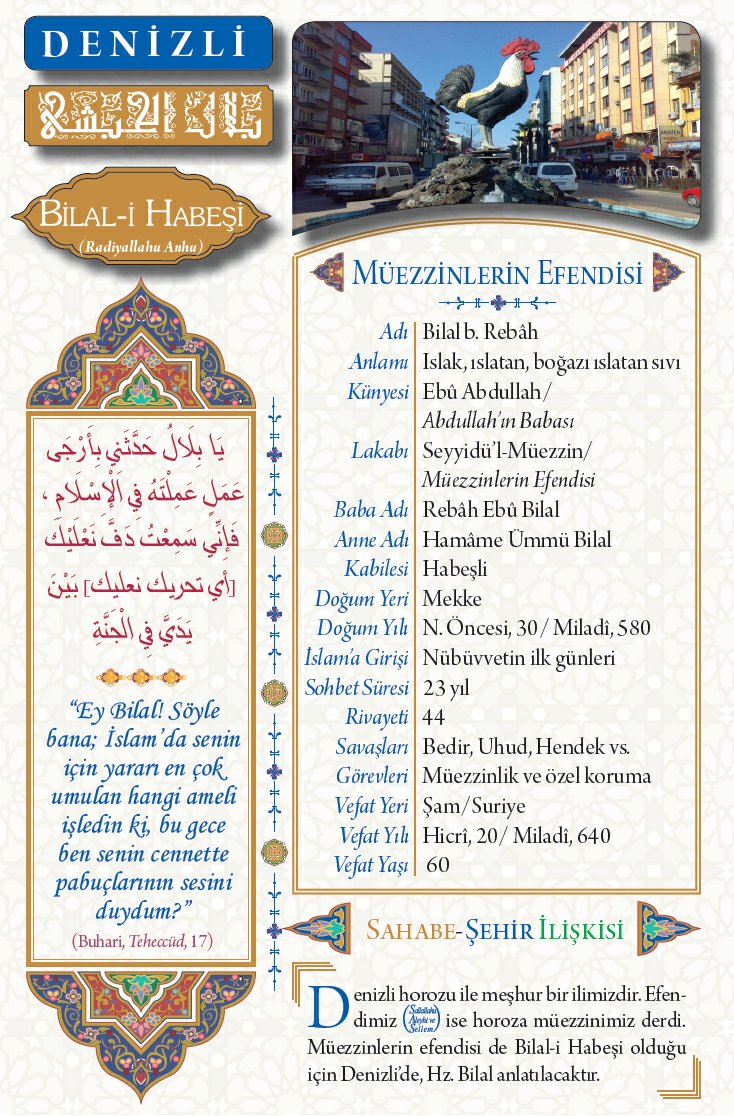 DENİZLİ
بلال الحبشي
BİLAL-İ HABEŞİ
(Radiyallahu Anhu)
يَا بِلَالُ حَدِّثْنِي بِأَرْجَى
عَمَلٍ عَمِلْتَهُ فِي الْإِسْلَامِ ،
فَإِنِّي سَمِعْتُ دَفَّ نَعْلَيْكَ
[أي تحريك نعليك] بَيْنَ
يَدَيَّ فِي الْجَنَّةِ
“Ey Bilal! Söyle
bana; İslam’da senin
için yararı en çok
umulan hangi ameli
işledin ki, bu gece
ben senin cennette
pabuçlarının sesini
duydum?”
(Buhari, Teheccüd, 17)
MÜEZZİNLERİN EFENDİSİ
Adı Bilal b. Rebâh
Anlamı Islak, ıslatan, boğazı ıslatan sıvı
Künyesi Ebû Abdullah/
Abdullah’ın Babası
Lakabı Seyyidü’l-Müezzin/
Müezzinlerin Efendisi
Baba Adı Rebâh Ebû Bilal
Anne Adı Hamâme Ümmü Bilal
Kabilesi Habeşli
Doğum Yeri Mekke
Doğum Yılı N. Öncesi, 30/ Miladî, 580
İslam’a Girişi Nübüvvetin ilk günleri
Sohbet Süresi 23 yıl
Rivayeti 44
Savaşları Bedir, Uhud, Hendek vs.
Görevleri Müezzinlik ve özel koruma
Vefat Yeri Şam/Suriye
Vefat Yılı Hicrî, 20/ Miladî, 640
Vefat Yaşı 60
SAHABE-ŞEHİR İLİŞKİSİ
Denizli horozu ile meşhur bir ilimizdir. Efen-
dimiz (Sallallahu Aleyhi ve Sellem) ise horoza müezzinimiz derdi.
Müezzinlerin efendisi de Bilal-i Habeşi olduğu
için Denizli’de, Hz. Bilal anlatılacaktır.